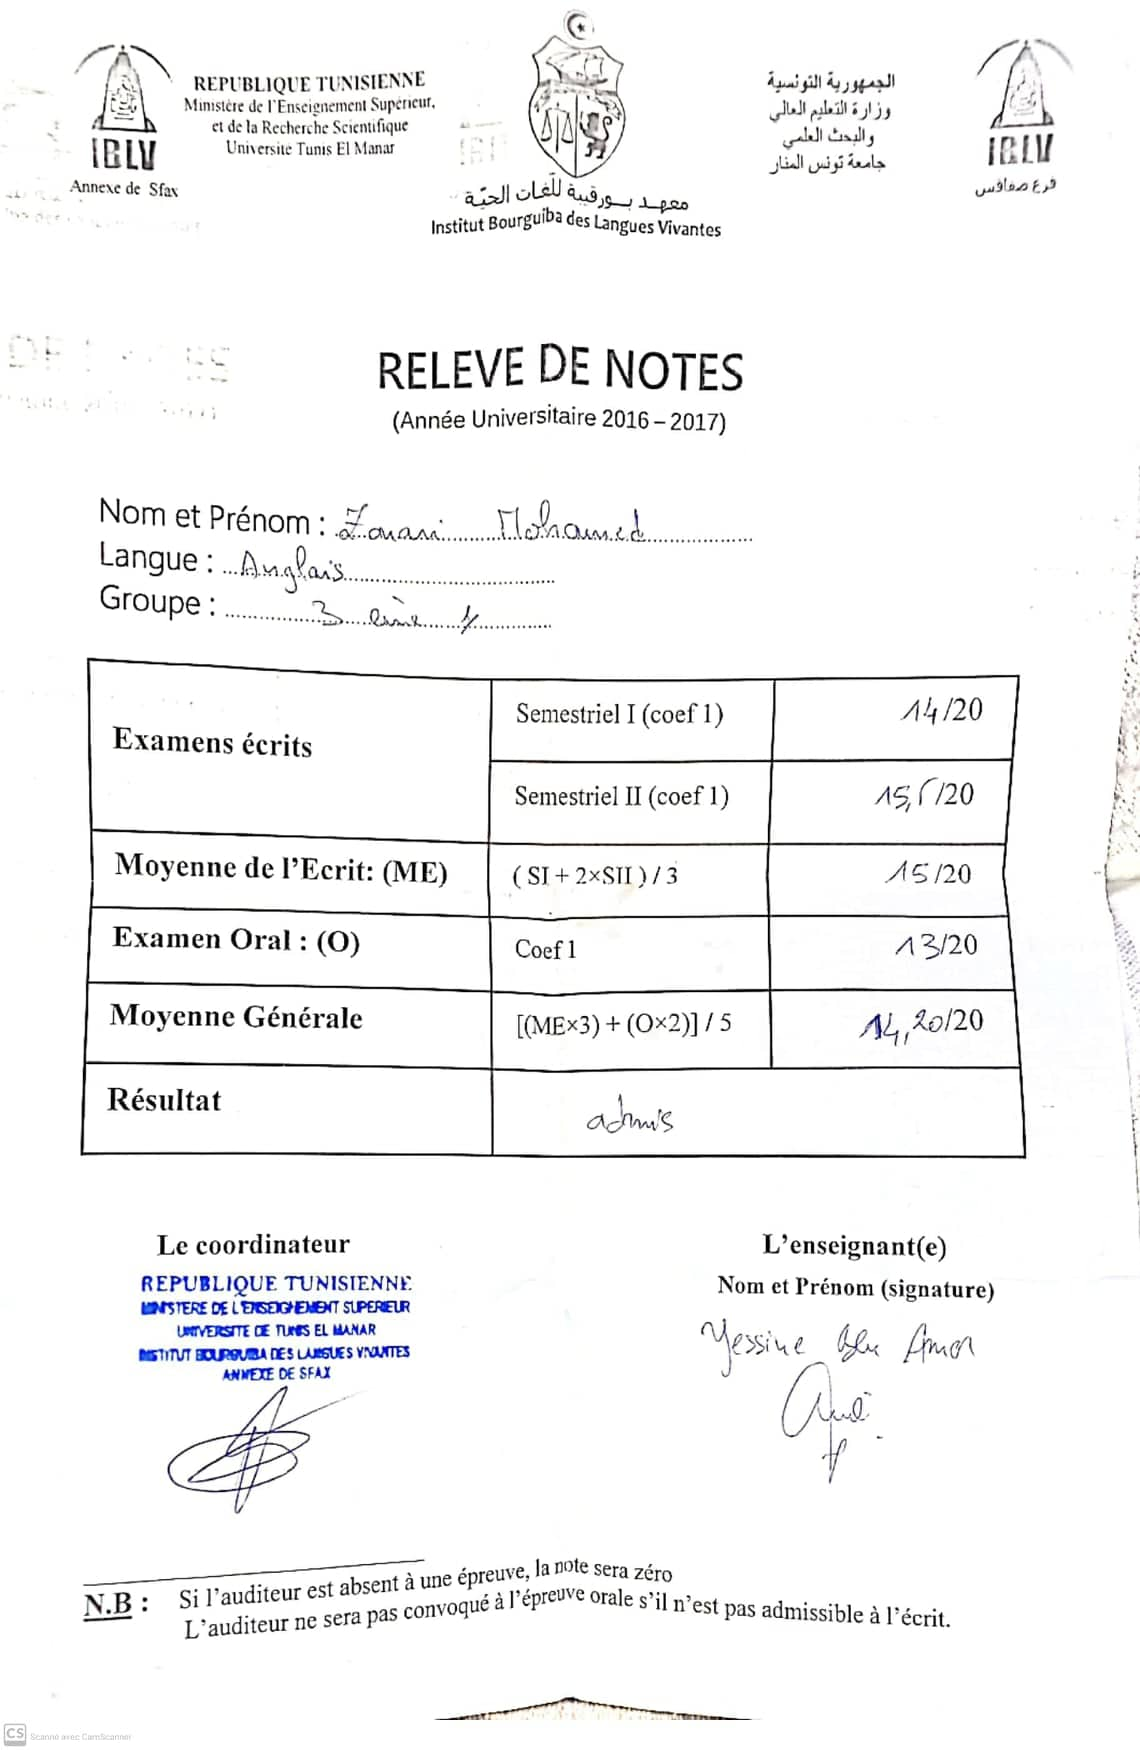 REPUBLIQUE TUNISIENNE
Ministère de l'Enseignement Supérieur,
et de la Recherche Scientifique
Université Tunis El Manar
IBLV
Annexe de Sfax
معهد بورقيبة للّغات الحيّة
Institut Bourguiba des Langues Vivantes
الجمهورية التونسية
وزارة التعليم العالي
والبحث العلمي
جامعة تونس المنار
IBLV
فرع صفاقس
RELEVE DE NOTES
(Année Universitaire 2016 – 2017)
Nom et Prénom : Zouari Mohamed
Langue : Anglais
Groupe : 3 ème
Examens écrits
Semestriel I (coef 1) 14/20
Semestriel II (coef 1) 15,5/20
Moyenne de l'Ecrit: (ME) ( SI + 2×SII ) / 3 15/20
Examen Oral : (O) Coef 1 13/20
Moyenne Générale [(ME×3) + (O×2)] / 5 14,20/20
Résultat admis
Le coordinateur
REPUBLIQUE TUNISIENNE
MINISTERE DE L'ENSEIGHEMENT SUPERIEUR
UNIVERSITE DE TUNIS EL MANAR
INSTITUT BOURGUIBA DES LANGUES VIVANTES
ANNEXE DE SFAX
L'enseignant(e)
Nom et Prénom (signature)
Yessine Ben Amor
N.B : Si l'auditeur est absent à une épreuve, la note sera zéro
L'auditeur ne sera pas convoqué à l'épreuve orale s'il n'est pas admissible à l'écrit.
CS Scanné avec CamScanner